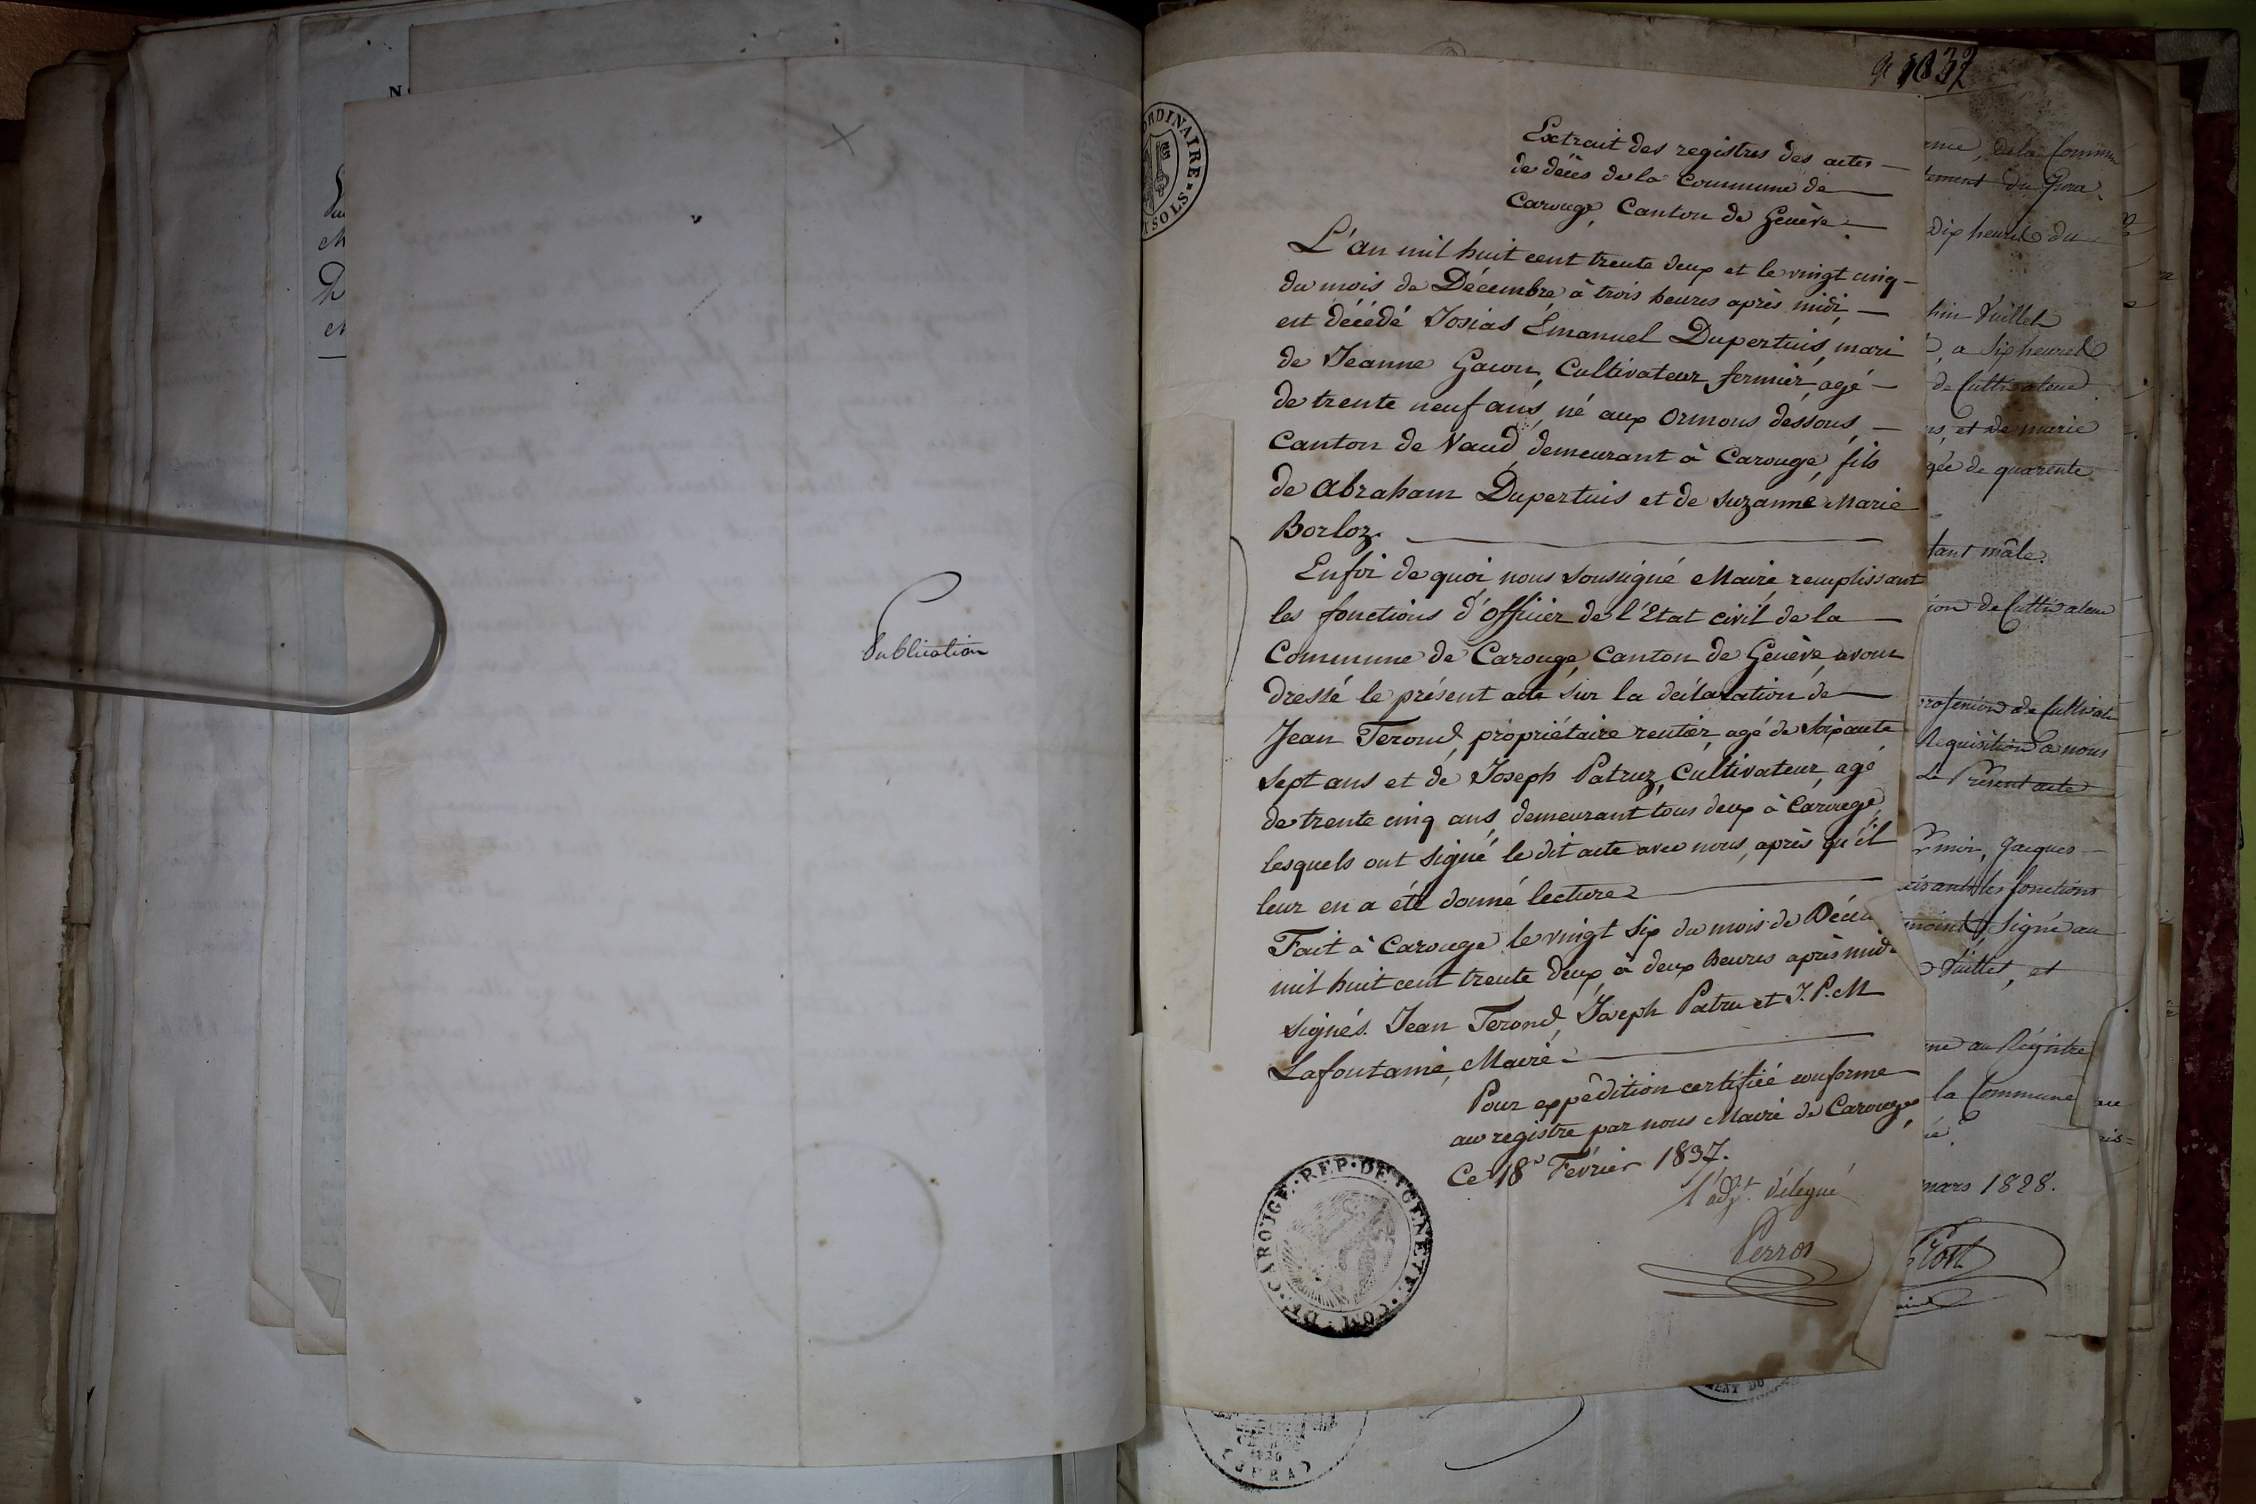 Publication
9e 1032
ORDINAIRE
SOLS
Extrait des registres des actes
de décès de la Commune de
Carouge, Canton de Genève.
L'an mil huit cent trente deux et le vingt cinq
du mois de Décembre à trois heures après midi,
est décédé Josias Emanuel Dupertuis, mari
de Jeanne Gacon, Cultivateur fermier, agé
de trente neuf ans, né aux Ormons dessous,
Canton de Vaud, demeurant à Carouge, fils
de Abraham Dupertuis et de Suzanne Marie
Borloz.
Enfoi de quoi, nous soussigné Maire, remplissant
les fonctions d'Officier de l'Etat civil de la
Commune de Carouge, Canton de Genève, avons
dressé le présent acte sur la déclaration de
Jean Terond, propriétaire rentier, agé de soixante
sept ans et de Joseph Patruz, Cultivateur, agé
de trente cinq ans, demeurant tous deux à Carouge,
lesquels ont signé le dit acte avec nous, après qu'il
leur en a été donné lecture
Fait à Carouge le vingt six du mois de Décem
mil huit cent trente deux, à deux heures après midi
signés. Jean Terond, Joseph Patru et J. P. M
Lafontaine, Maire.
Pour expédition certifiée conforme
au registre par nous Maire de Carouge,
Ce 18e Février 1837.
l'adjt. délégué
Perron
COM. DE CAROUGE. REP. DE GENEVE
de la Commune
du Jura.
dix heures du
Vuillet
a six heures
de Cultivateur
et de marie
de quarente
mâle.
de Cultivateur
Requisition a nous
Le Présent acte
moi, Jacques
les fonctions
Signé au
Vuillet, et
au Régistre
la Commune
mars 1828.